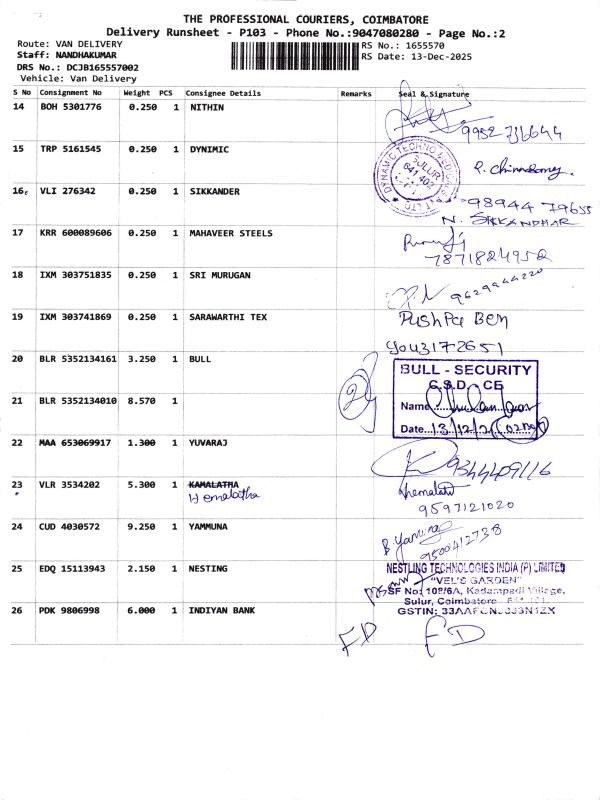 THE PROFESSIONAL COURIERS, COIMBATORE
Delivery Runsheet - P103 - Phone No.:9047080280 - Page No.:2
Route: VAN DELIVERY
RS No.: 1655570
Staff: NANDHAKUMAR
RS Date: 13-Dec-2025
DRS No.: DCJB165557002
Vehicle: Van Delivery
S No Consignment No Weight PCS Consignee Details Remarks Seal & Signature
14 BOH 5301776 0.250 1 NITHIN
9952736644
15 TRP 5161545 0.250 1 DYNIMIC
DYNAMIC TECHNO
SULUR
641 402
16 VLI 276342 0.250 1 SIKKANDER
98944 79655
N. SIKKANDHAR
17 KRR 600089606 0.250 1 MAHAVEER STEELS
7871824952
18 IXM 303751835 0.250 1 SRI MURUGAN
9629444220
19 IXM 303741869 0.250 1 SARAWARTHI TEX
Pushpa Ben
9043172651
20 BLR 5352134161 3.250 1 BULL
BULL - SECURITY
Name
21 BLR 5352134010 8.570 1
Date 13/12/2
22 MAA 653069917 1.300 1 YUVARAJ
9344409116
23 VLR 3534202 5.300 1 KAMALATHA
Hemalatha
Hemalatha
9597121020
24 CUD 4030572 9.250 1 YAMMUNA
9500412738
25 EDQ 15113943 2.150 1 NESTING
NESTLING TECHNOLOGIES INDIA (P) LIMITED
"VEL'S GARDEN"
SF No: 108/6A, Kadampadi Village,
Sulur, Coimbatore
GSTIN:
26 PDK 9806998 6.000 1 INDIYAN BANK
FD FD